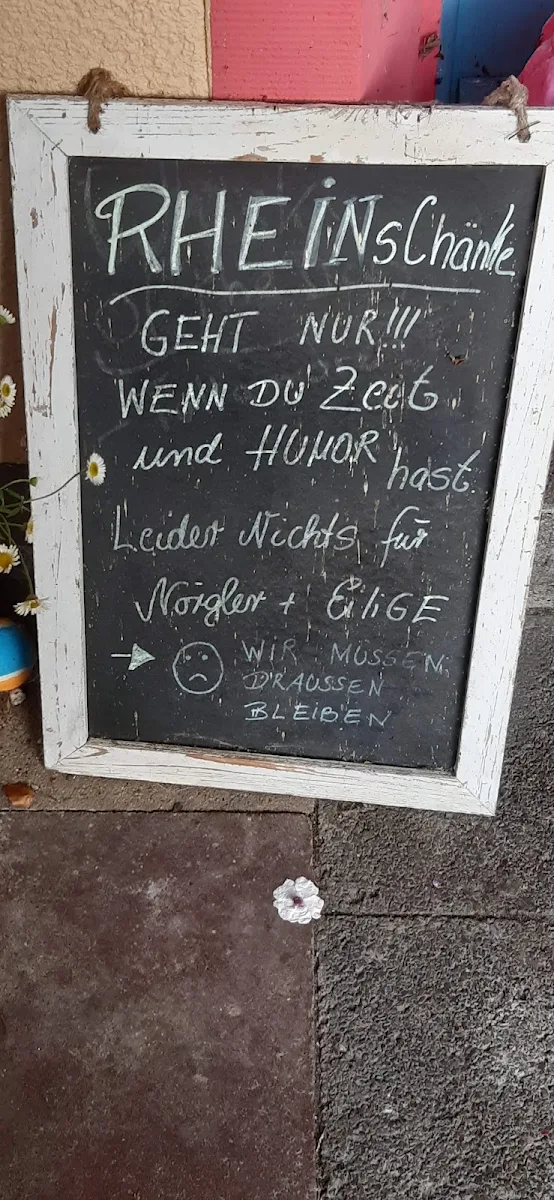 RHEINsChänke
GEHT NUR!!!
WENN DU Zeit
und HUMOR hast
Leider Nichts für
Nörgler + EiliGE
WIR MÜSSEN
DRAUSSEN
BLEIBEN